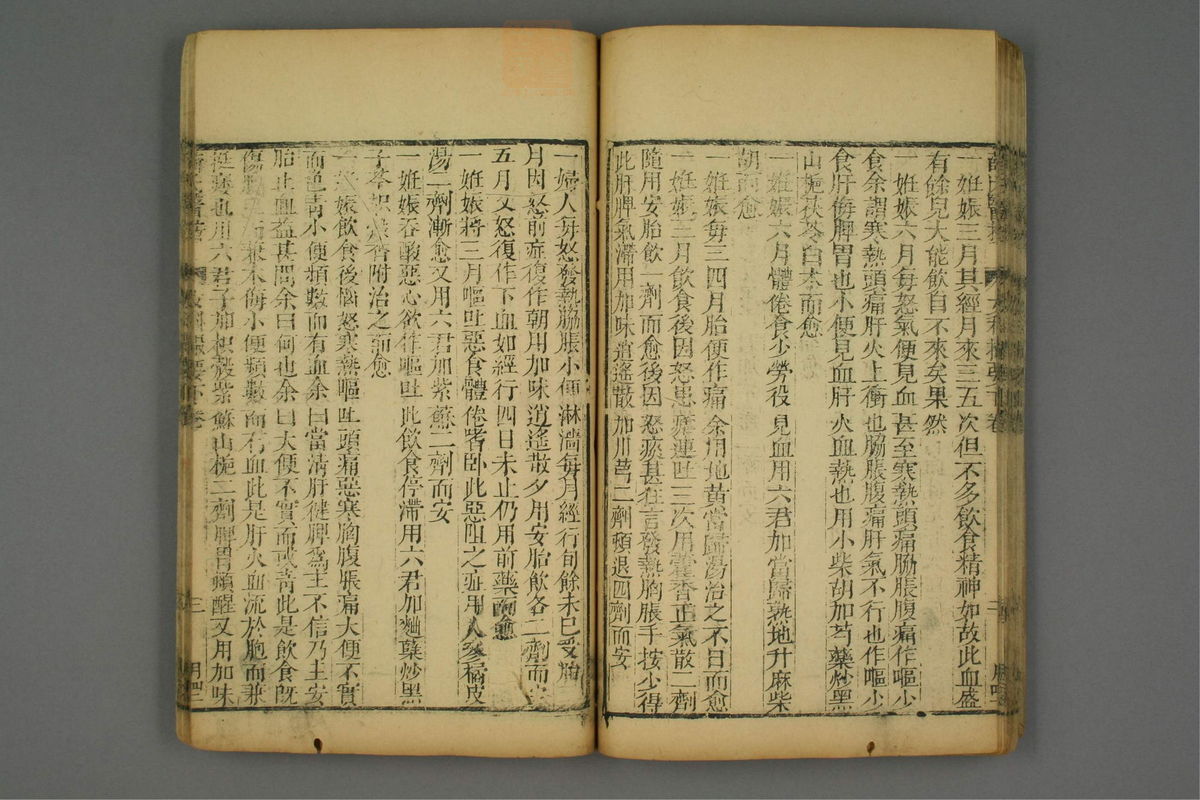 一妊娠三月其經月來三五次但不多飲食精神如故此血盛
有餘兒大能飲自不來矣果然
一妊娠六月每怒氣便見血甚至寒熱頭痛脇脹腹痛作嘔少
食余謂寒熱頭痛肝火上衝也脇脹腹痛肝氣不行也作嘔少
食肝侮脾胃也小便見血肝火血熱也用小柴胡加芍藥炒黑
山梔茯苓白朮而愈
一妊娠六月體倦食少勞役見血用六君加當歸熟地升麻柴
胡而愈
一妊娠每三四月胎便作痛余用地黃當歸湯治之不日而愈
一妊娠三月飲食後因怒患瘧連吐三次用藿香正氣散二劑
隨用安胎飲一劑而愈後因怒痰甚狂言發熱胸脹手按少得
此肝脾氣滯用加味逍遙散加川芎二劑頓退四劑而安
一婦人每怒發熱脇脹小便淋濇每月經行旬餘未已受胎
月因怒前症復作朝用加味逍遙散夕用安胎飲各二劑而
五月又怒復作下血如經行四日未止仍用前藥而愈
一妊娠將三月嘔吐惡食體倦嗜卧此惡阻之症用人參橘皮
湯二劑漸愈又用六君加紫蘇二劑而安
一妊娠吞酸惡心欲作嘔吐此飲食停滯用六君加麯蘖炒黑
子芩枳殼香附治之而愈
一妊娠飲食後惱怒寒熱嘔吐頭痛惡寒胸腹脹痛大便不實
而色青小便頻數而有血余曰當清肝健脾爲主不信乃主安
胎止血益甚問余曰何也余曰大便不實而或青此是飲食既
傷 兼木侮小便頻數而有血此是肝火血流於胞而兼
挺痿也用六君子加枳殼紫蘇山梔二劑脾胃頓醒又用加味